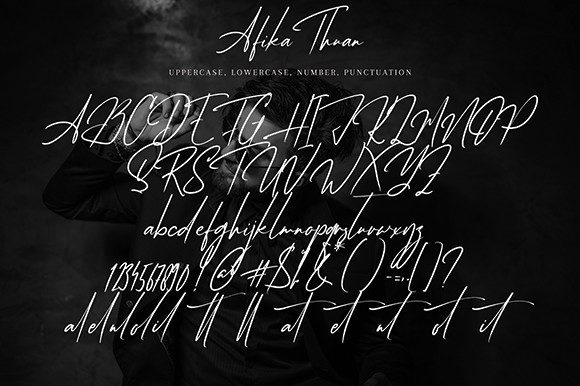 Afika Thuan
UPPERCASE, LOWERCASE, NUMBER, PUNCTUATION
ABCDEFGHIJKLMNOP
QRSTUVWXYZ
abcdefghijklmnopqrstuvwxyz
1234567890!@#$%&*()-=[]?
al el ul ol il tt ll at et ut ot it